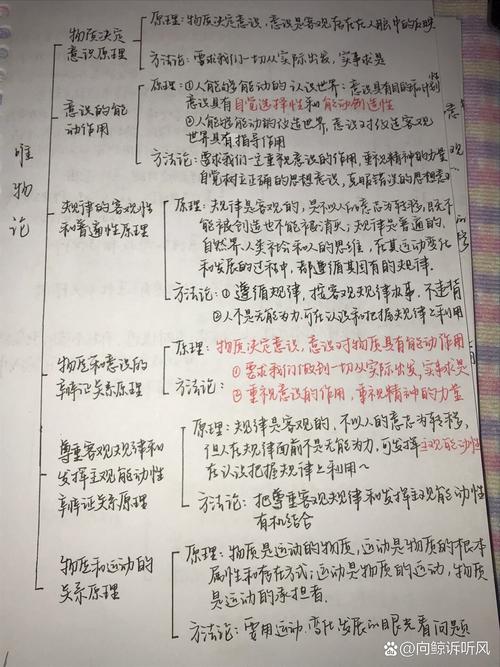 唯物论
物质决定
意识原理
原理：物质决定意识，意识是客观存在在人脑中的反映
方法论：要求我们一切从实际出发，实事求是
意识的能
动作用
原理：①人能够能动的认识世界：意识具有目的和计划性
意识具有自觉选择性和能动创造性
②人能够能动的改造世界，意识对改造客观
世界具有指导作用
方法论：要求我们一定重视意识的作用，重视精神的力量
自觉树立正确的思想意识，克服错误的思想意
规律的客观性
和普遍性原理
原理：规律是客观的，是不以人的意志为转移，既不
能被创造也不能被消灭；规律是普遍的，
自然界、人类社会和人的思维，在其运动变化
和发展的过程中，都遵循其固有的规律.
方法论：①遵循规律，按客观规律办事，不违背
②人不是无能为力，可在认识和把握规律上利用
物质和意识的
辩证关系原理
原理：物质决定意识，意识对物质具有能动作用
①要求我们做到一切从实际出发，实事求是
方法论：
②重视意识的作用，重视精神的力量
尊重客观规律和
发挥主观能动性
辩证关系原理
原理：规律是客观的，不以人的意志为转移，
但人在规律面前不是无能为力，可发挥主观能动性
在认识把握规律上利用~
方法论：把尊重客观规律和发挥主观能动性
有机结合
物质和运动的
关系原理
原理：物质是运动的物质，运动是物质的根本
属性和存在方式；运动是物质的运动，物质
是运动的承担者.
方法论：要用运动、变化发展的眼光看问题
百家号/向鲸诉听风